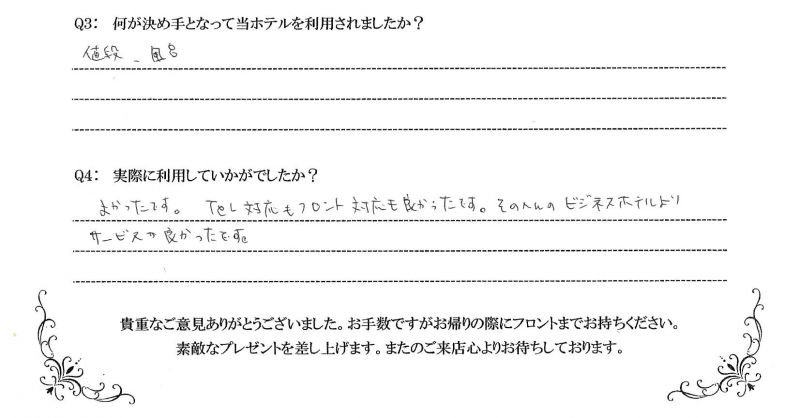 Q3: 何が決め手となって当ホテルを利用されましたか?
値段、風呂
Q4: 実際に利用していかがでしたか?
よかったです。 TEL対応もフロント対応も良かったです。そのへんのビジネスホテルより
サービスが良かったです。
貴重なご意見ありがとうございました。お手数ですがお帰りの際にフロントまでお持ちください。
素敵なプレゼントを差し上げます。またのご来店心よりお待ちしております。